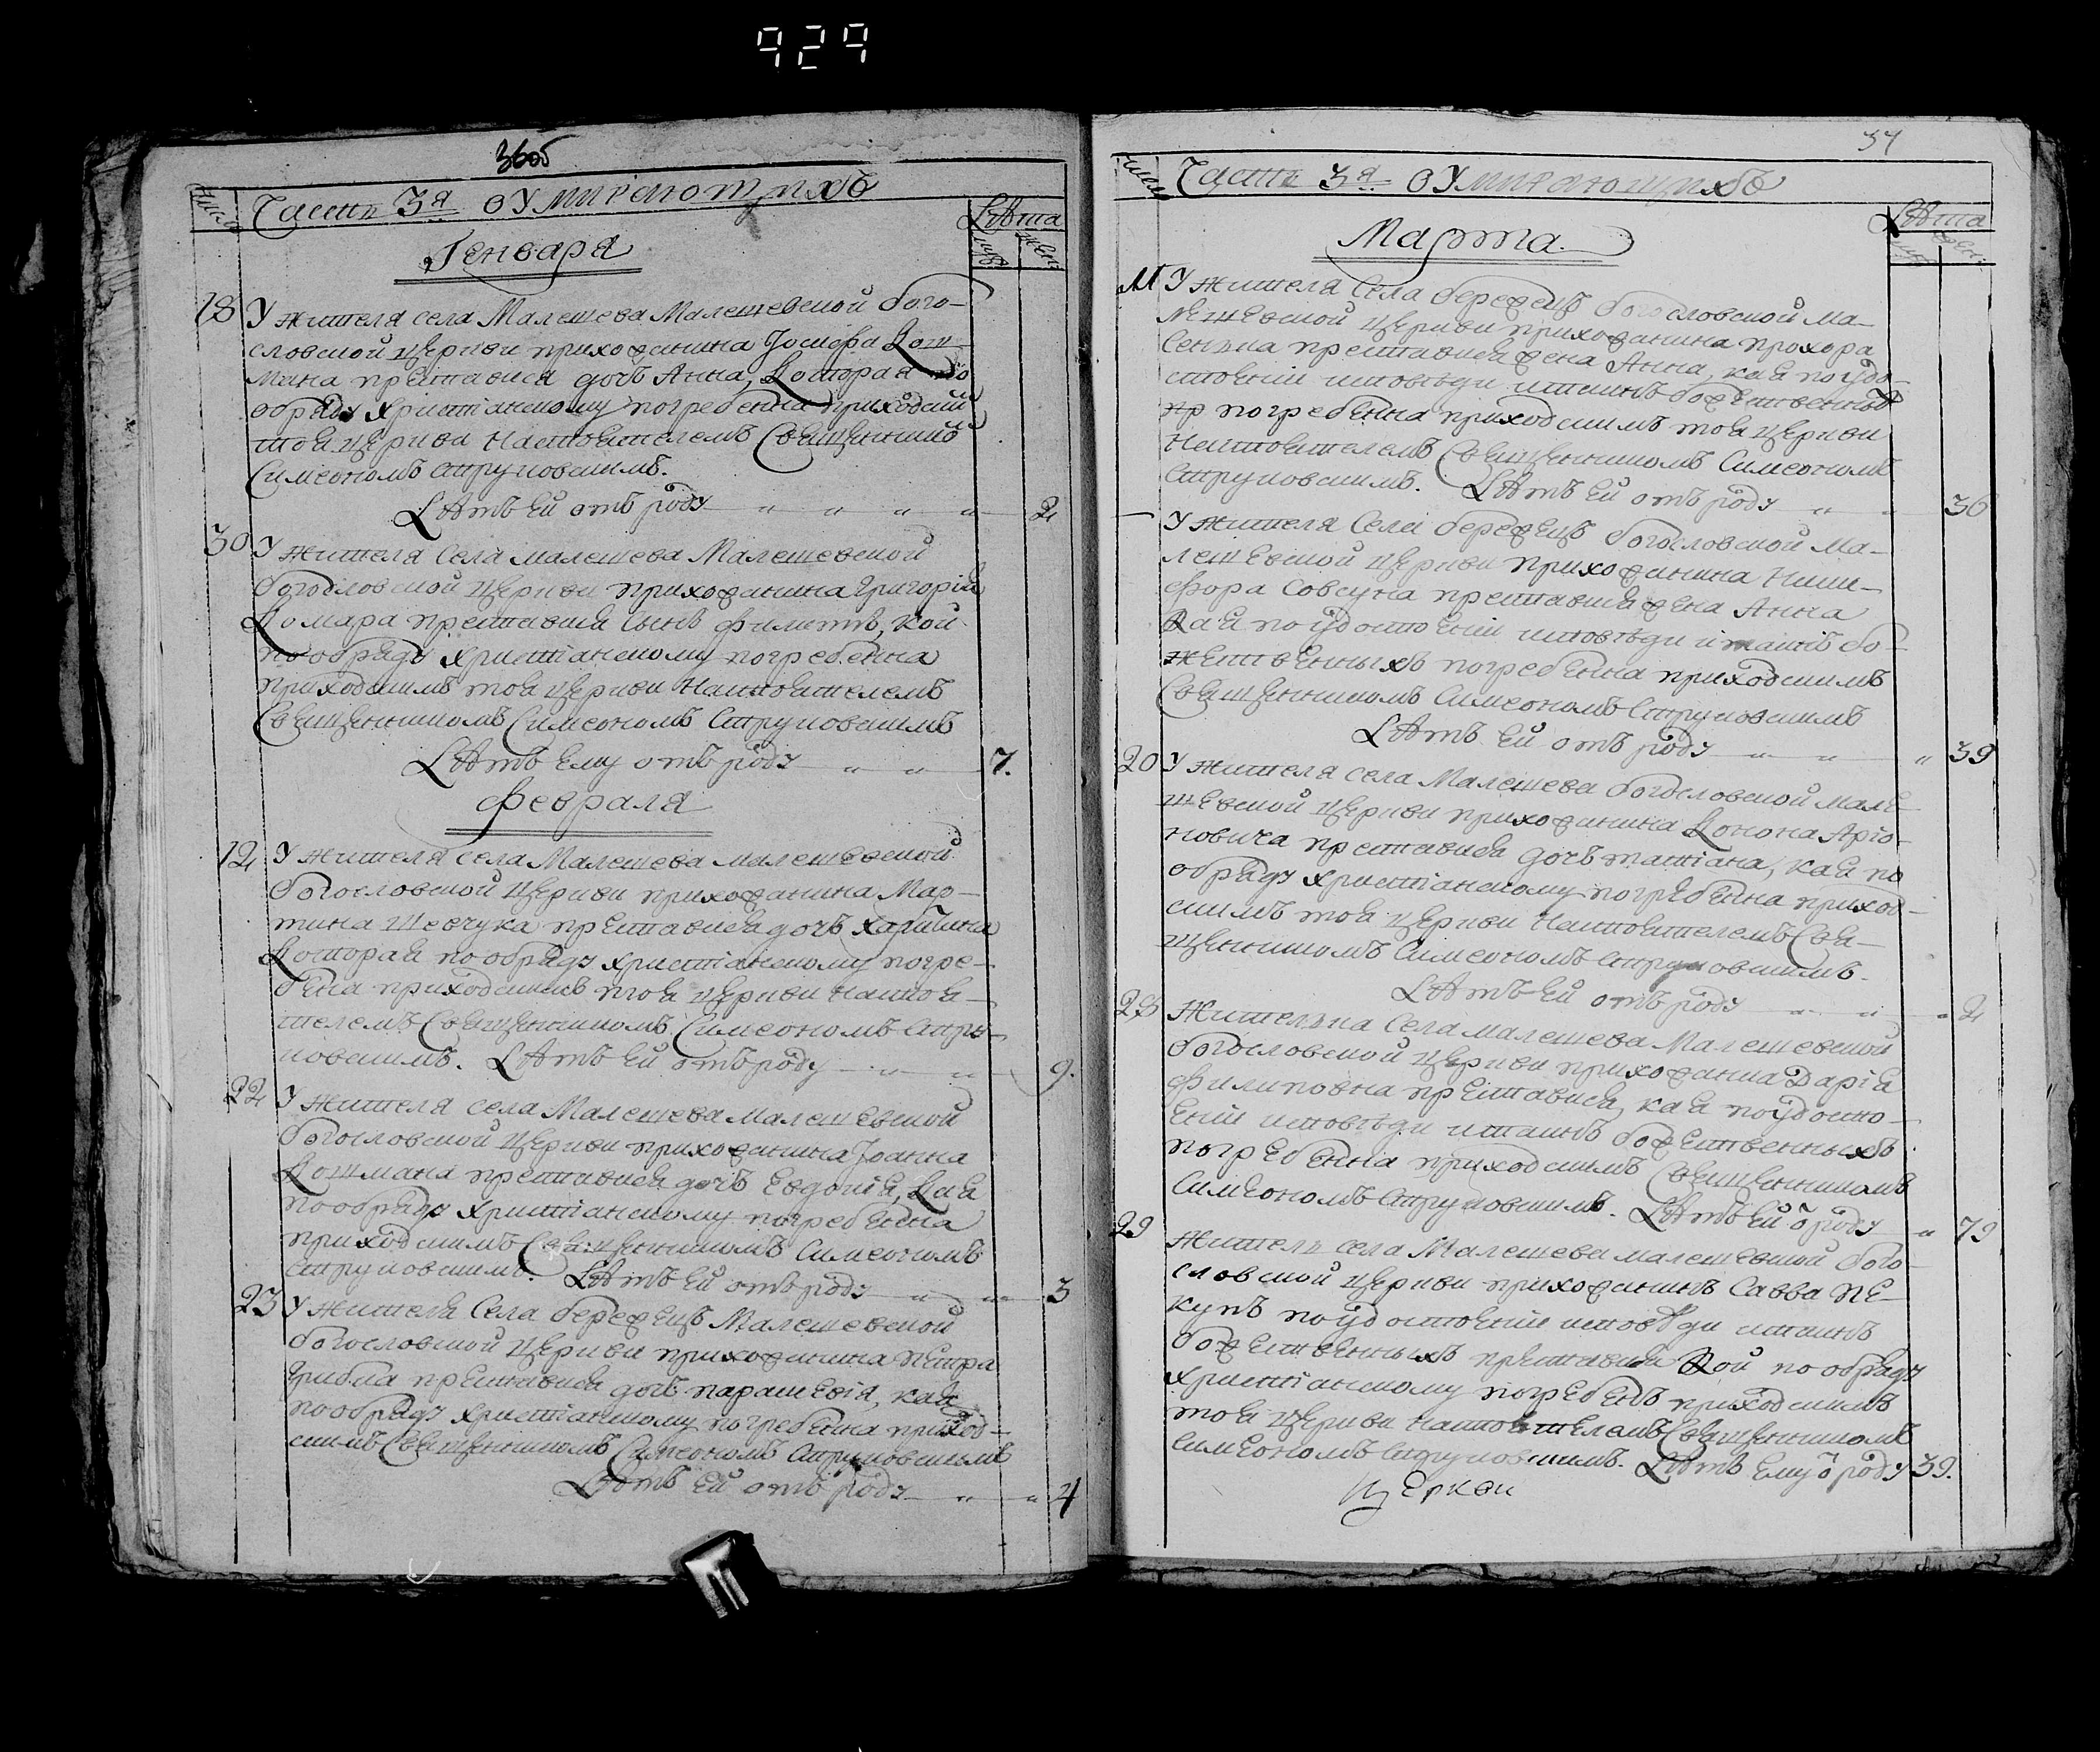 929
36об
Числа Часть 3я о умирающихъ
Лѣта
Генваря
муж: жен:
18 У жителя села Малешева Малешевской бого-
словской церкви прихожанина Іосифа Кош-
мана преставися дочь Анна, Которая по
обряду христіанскому погребенна приходским
тоя церкви Настоятелемъ Священником
Симеономъ Струковскимъ.
Лѣтъ ей отъ роду 2
30 У жителя села малешева Малешевской
богословской церкви прихожанина Григорія
Комара преставися сынъ филиппъ, кой
по обряду христіанскому погребенна
приходскимъ тоя церкви Настоятелемъ
Священникомъ Симеономъ Струковскимъ
Лѣтъ ему отъ роду 7.
Февраля
12 У жителя села Малешева малешевской
богословской церкви прихожанина Мар-
тина Шевчука преставися дочь
Которая по обряду христіанскому погре-
бена приходскимъ тоя церкви настоя-
телемъ Священникомъ Симеономъ Стру-
ковскимъ. Лѣтъ ей отъ роду 9.
22 У жителя села Малешева малешевской
богословской церкви прихожанина Іоанна
Кошмана преставися дочь Евдокія, Кая
по обряду христіанскому погребенна
приходскимъ Священникомъ Симеономъ
Струковскимъ. Лѣтъ ей отъ роду 3
23 У жителя Села бережецъ Малешевской
богословской церкви прихожанина Петра
преставися дочь параскевія, кая
по обряду христіанскому погребенна приход-
скимъ Священникомъ Симеономъ Струковскимъ
Лѣтъ ей отъ роду 4
37
Числа Часть 3я о умирающихъ
Лѣта
Марта
муж: жен:
У жителя Села бережецъ богословской Ма-
лешевской церкви прихожанина прохора
преставися жена Анна, кая по удо-
стоеніи исповѣди и таинъ божественныхъ
пр погребенна приходскимъ тоя церкви
Настоятелемъ Священникомъ Симеономъ
Струковскимъ. Лѣтъ ей отъ роду 36
— У жителя Села бережецъ богословской Ма-
лешевской церкви прихожанина Ники-
фора Совсуна преставися жена Анна
Кая по удостоеніи исповѣди и таинъ бо-
жественныхъ погребенна приходскимъ
Священникомъ Симеономъ Струковскимъ
Лѣтъ ей отъ роду 39
20 У жителя села Малешева богословской мале-
шевской церкви прихожанина Конона Аріо-
новича преставися дочь татіана, кая по
обряду христіанскому погребенна приход-
скимъ тоя церкви Настоятелемъ Свя-
щенникомъ Симеономъ Струковскимъ.
Лѣтъ ей отъ роду 2
28 Жителька Села малешева Малешевской
богословской церкви прихожанка Дарія
филиповна преставися, кая по удосто-
еніи исповѣди и таинъ божественныхъ
погребенна приходскимъ Священникомъ
Симеономъ Струковскимъ. Лѣтъ ей ѿ роду 79
29 Житель села Малешева малешевской бого-
словской церкви прихожанинъ Савва Пе-
кунъ по удостоеніи исповѣди и таинъ
божественныхъ преставися Кой по обряду
христіанскому погребенъ приходскимъ
тоя церкви настоятелемъ Священникомъ
Симеономъ Струковскимъ. Лѣтъ ему ѿ роду 39.
церкви